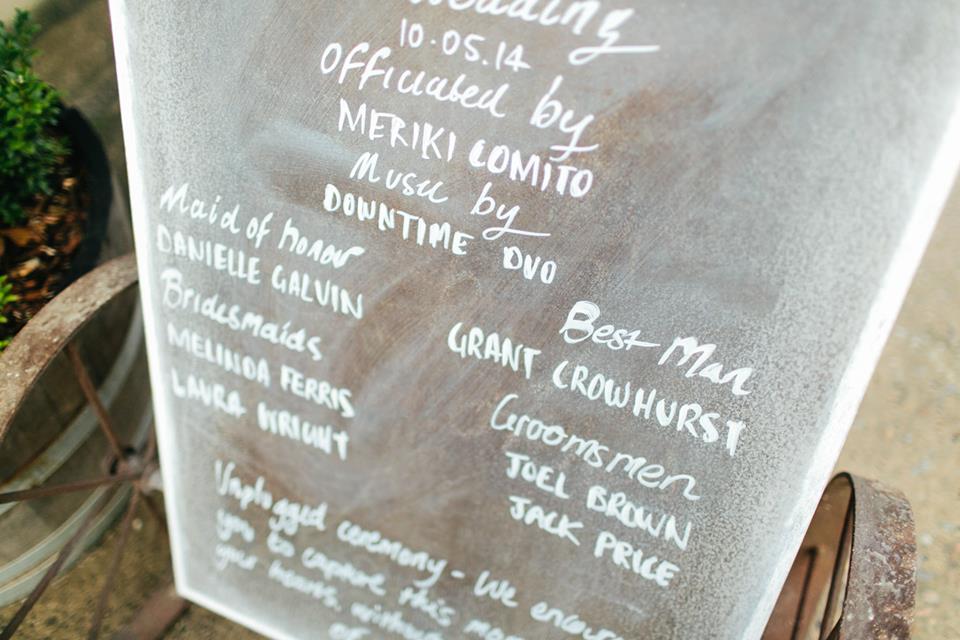 Wedding
10.05.14
Officiated by
MERIKI COMITO
Music by
DOWNTIME DUO
Maid of honor
DANIELLE GALVIN
Bridesmaids
MELINDA FERRIS
LAURA WRIGHT
Best Man
GRANT CROWHURST
Groomsmen
JOEL BROWN
JACK PRICE
Unplugged ceremony - We
you to capture this
your hearts, without
of